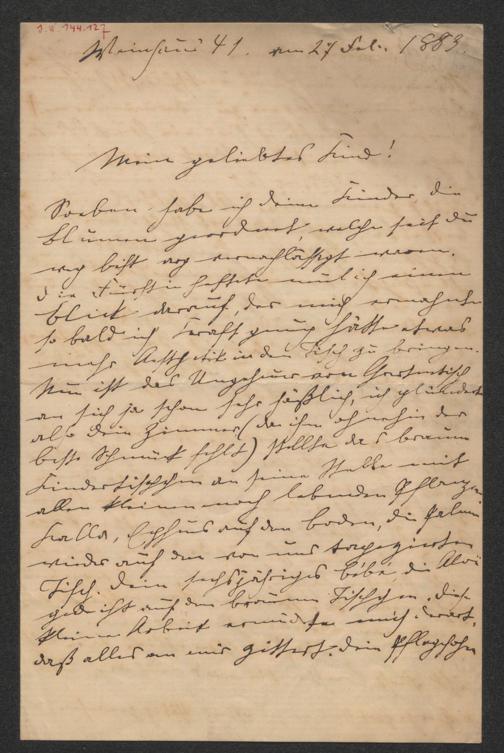 I.N. 144.127
Weinhaus 41. am 27 Feb. 1883.
Mein geliebtes Kind!
Soeben habe ich deine Kinder die
Blumen geordnet, welche seit du
weg bist arg vernachlässigt waren.
Die Fürstin heftete neulich einen
Blick darauf, der mich ermahnte
so bald ich Kraft genug hätte etwas
mehr Aesthetik in den Tisch zu bringen.
Nun ist das Ungeheuer von Gartentisch
an sich ja schon sehr häßlich, ich plünderte
also dein Zimmer (da ihm ohnehin der
beste Schmuck fehlt) stellte das braune
Kindertischchen an seine Stelle mit
allen kleinen noch lebenden Pflanzen
Kalla, Epheus auf den Boden, die Palme
wieder auf den von uns tapezierten
Tisch. Dein sechsjähriges Bébé die Aloe
gedeiht auf dem braunen Tischchen. Diese
kleine Arbeit ermüdete mich derart,
daß alles an mir zittert. Dein Pflegesohn